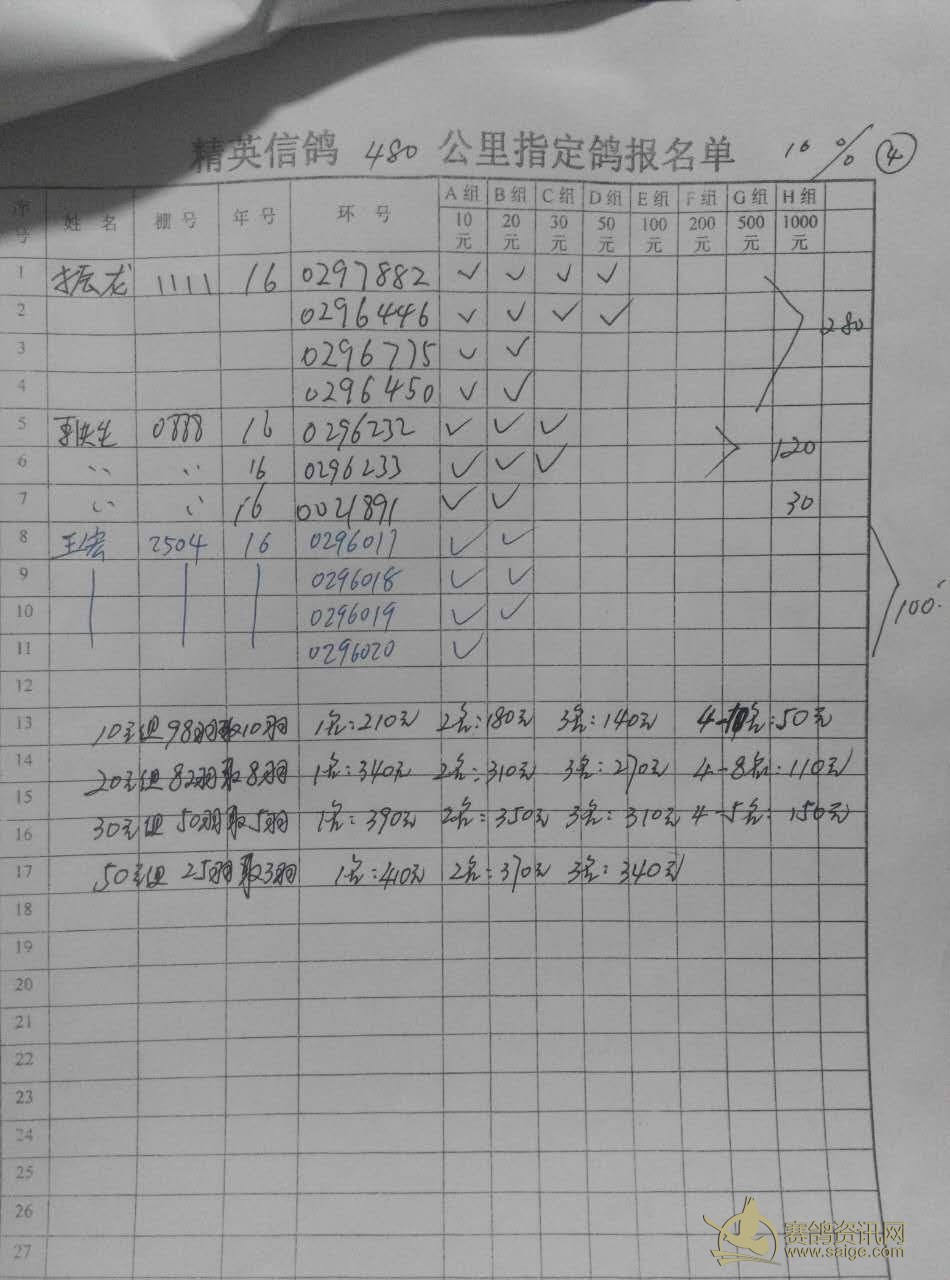 精英信鸽 480 公里指定鸽报名单 10% ④
序号 姓名 棚号 年号 环号 A组 B组 C组 D组 E组 F组 G组 H组
10元 20元 30元 50元 100元 200元 500元 1000元
1 振龙 1111 16 0297882 ✓ ✓ ✓ ✓
2 0296446 ✓ ✓ ✓ ✓ 280
3 0296775 ✓ ✓
4 0296450 ✓ ✓
5 0888 16 0296232 ✓ ✓ ✓
6 〃 〃 16 0296233 ✓ ✓ ✓ 120
7 〃 〃 16 0021891 ✓ ✓ 30
8 王宏 2504 16 0296017 ✓ ✓
9 0296018 ✓ ✓
10 0296019 ✓ ✓ 100
11 0296020 ✓
12
13 10元组98羽取10羽 1名:210元 2名:180元 3名:140元 4-10名:50元
14 20元组82羽取8羽 1名:340元 2名:310元 3名:270元 4-8名:110元
15
16 30元组50羽取5羽 1名:390元 2名:350元 3名:310元 4-5名:150元
17 50元组 25羽取3羽 1名:410元 2名:370元 3名:340元
18
19
20
21
22
23
24
25
26
27
赛鸽资讯网
www.saige.com